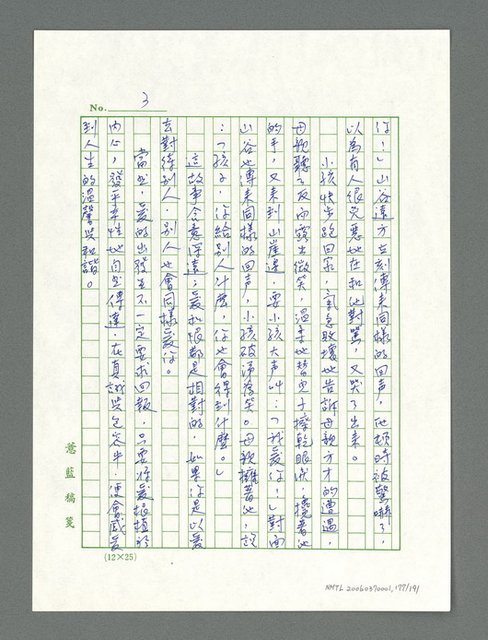 No. 3
你！」山谷遠方立刻傳来同樣的回声，他頓時被驚嚇了，
以為有人很兇惡地在和他對罵，又哭了出来。
小孩快步跑回家，氣急敗壞地告訴母親方才的遭遇，
母親聽了反而露出微笑，溫柔地替兒子擦乾眼淚，攙著他
的手，又来到山崖邊，要小孩大声叫：「我愛你！」對面
山谷也傳来同樣的回声，小孩破涕為笑。母親擁著他，說
：「孩子，你給別人什麼，你也會得到什麼。」
這故事含意深遠，愛和恨都是相對的，如果你是以愛
去對待別人，別人也會同樣愛你。
當然，愛的出發並不一定要求回報，只要將愛根植於
內心，發乎本性地自然傳達，在真誠與包容中，便會感受
到人生的溫馨與和諧。
慧監稿箋
(12×25)
NMTL 20060370001,177/191